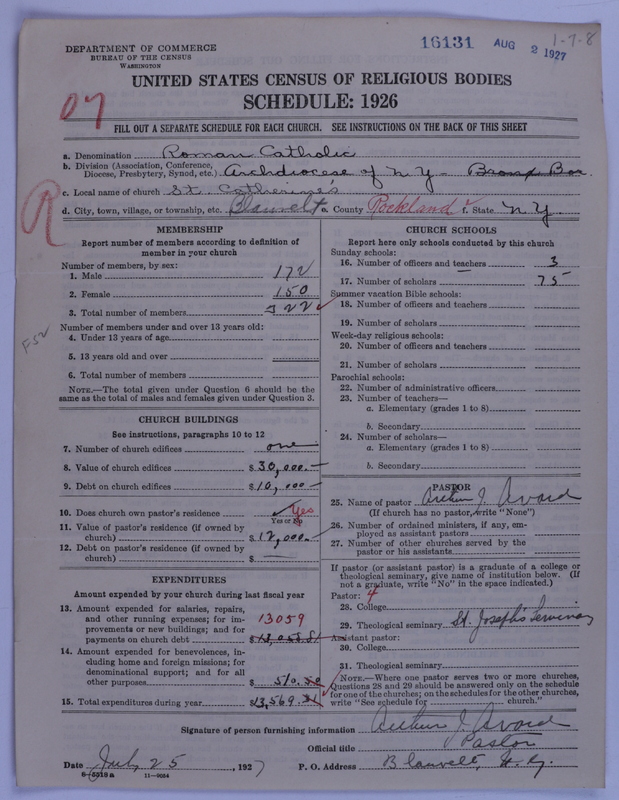 16131 AUG 2 1927 1-7-8
DEPARTMENT OF COMMERCE
BUREAU OF THE CENSUS
WASHINGTON
UNITED STATES CENSUS OF RELIGIOUS BODIES
SCHEDULE: 1926
07
FILL OUT A SEPARATE SCHEDULE FOR EACH CHURCH. SEE INSTRUCTIONS ON THE BACK OF THIS SHEET
a. Denomination Roman Catholic
b. Division (Association, Conference, Diocese, Presbytery, Synod, etc.) Archdiocese of N Y - Bronx Bor
c. Local name of church St. Catherine's
d. City, town, village, or township, etc. Blauvelt e. County Rockland f. State N Y.
R
MEMBERSHIP
Report number of members according to definition of member in your church
Number of members, by sex:
1. Male 172
2. Female 150
3. Total number of members 322
Number of members under and over 13 years old:
4. Under 13 years of age
5. 13 years old and over
6. Total number of members
NOTE.—The total given under Question 6 should be the same as the total of males and females given under Question 3.
F52
CHURCH BUILDINGS
See instructions, paragraphs 10 to 12
7. Number of church edifices one
8. Value of church edifices $30,000.—
9. Debt on church edifices $10,000—
10. Does church own pastor's residence Yes
Yes or No
11. Value of pastor's residence (if owned by church) $12,000.—
12. Debt on pastor's residence (if owned by church) $ —
EXPENDITURES
Amount expended by your church during last fiscal year
13. Amount expended for salaries, repairs, and other running expenses; for improvements or new buildings; and for payments on church debt 13059 $13,058.81
14. Amount expended for benevolences, including home and foreign missions; for denominational support; and for all other purposes $ 510.50
15. Total expenditures during year $13,569.31
CHURCH SCHOOLS
Report here only schools conducted by this church
Sunday schools:
16. Number of officers and teachers 3
17. Number of scholars 75
Summer vacation Bible schools:
18. Number of officers and teachers
19. Number of scholars
Week-day religious schools:
20. Number of officers and teachers
21. Number of scholars
Parochial schools:
22. Number of administrative officers
23. Number of teachers—
a. Elementary (grades 1 to 8)
b. Secondary
24. Number of scholars—
a. Elementary (grades 1 to 8)
b. Secondary
PASTOR
25. Name of pastor Arthur J. Avard
(If church has no pastor, write "None")
26. Number of ordained ministers, if any, employed as assistant pastors
27. Number of other churches served by the pastor or his assistants
If pastor (or assistant pastor) is a graduate of a college or theological seminary, give name of institution below. (If not a graduate, write "No" in the space indicated.)
Pastor: 4
28. College
29. Theological seminary St. Joseph's Seminary
Assistant pastor:
30. College
31. Theological seminary
NOTE.—Where one pastor serves two or more churches, Questions 28 and 29 should be answered only on the schedule for one of the churches; on the schedules for the other churches, write "See schedule for church."
Signature of person furnishing information Arthur J. Avard
Official title Pastor
Date July 25, 1927 P. O. Address Blauvelt, N. Y.
6-5318a 11-9054